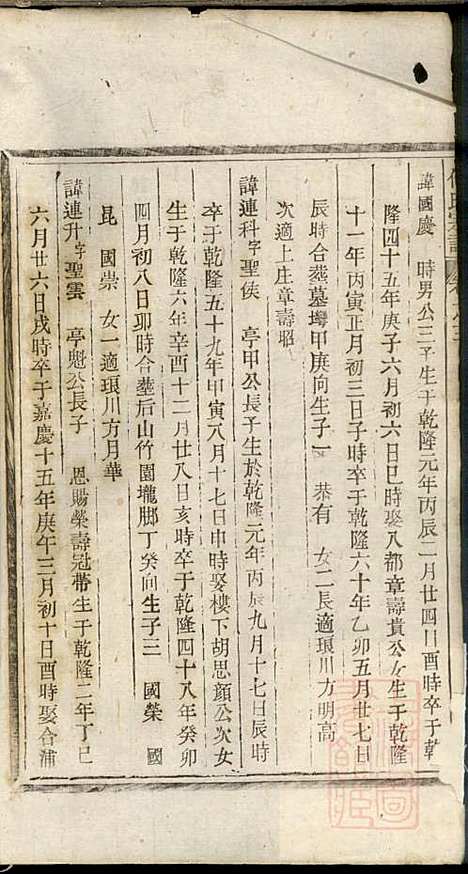 諱國慶 時男公三子生于乾隆元年丙辰二月廿四日酉時卒于乾
隆四十五年庚子六月初六日巳時娶八都章壽貴公女生于乾隆
十一年丙寅正月初三日子時卒于乾隆六十年乙卯五月廿七日
辰時合葬墓塆甲庚向生子一 恭有 女二長適琅川方明高
次適上庄章壽昭
諱連科字聖侯 亭甲公長子生於乾隆元年丙辰九月十七日辰時
卒于乾隆五十九年甲寅八月十七日申時娶樓下胡思顔公次女
生于乾隆六年辛酉十二月廿八日亥時卒于乾隆四十八年癸卯
四月初八日卯時合葬后山竹園壠脚丁癸向生子三 國榮 國
昆 國崇 女一適琅川方月華
諱連升字聖雲 亭魁公長子 恩賜榮壽冠帶生于乾隆二年丁巳
六月廿六日戌時卒于嘉慶十五年庚午三月初十日酉時娶合浦